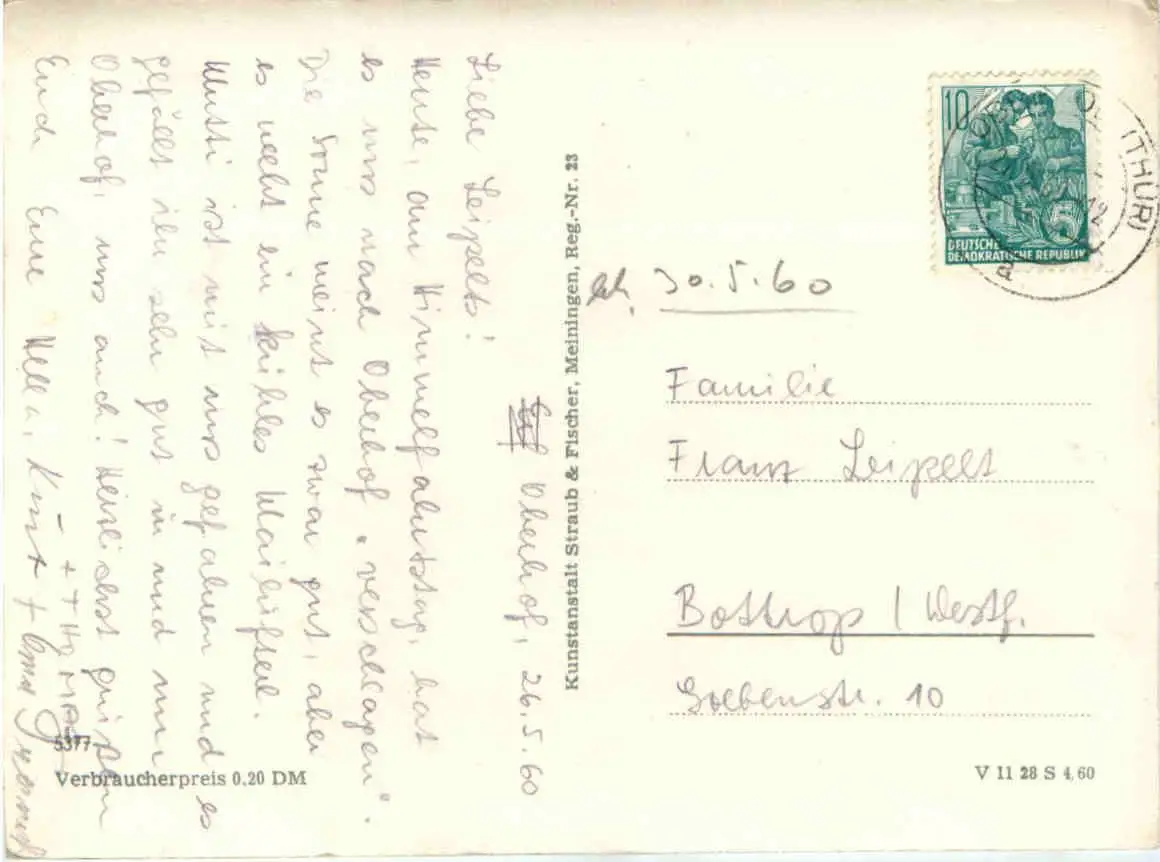 Oberhof, 26.5.60
Liebe Leipelts!
Heute, am Himmelfahrtstag, hat
es uns nach Oberhof „verschlagen".
Die Sonne meint es zwar gut, aber
es weht ein kühles Mailüfterl.
Mutti ist mit uns gefahren und es
gefällt ihr sehr gut in und um
Oberhof, uns auch! Herzlichst grüßen
Euch Eure Hella, Kurt + Oma
+ THOMAS
5377
Verbraucherpreis 0,20 DM
Kunstanstalt Straub & Fischer, Meiningen, Reg.-Nr. 23
10
5
DEUTSCHE
DEMOKRATISCHE REPUBLIK
(THÜR)
30.5.60
Familie
Franz Leipelt
Bottrop / Westf.
Goebenstr. 10
V 11 28 S 4,60